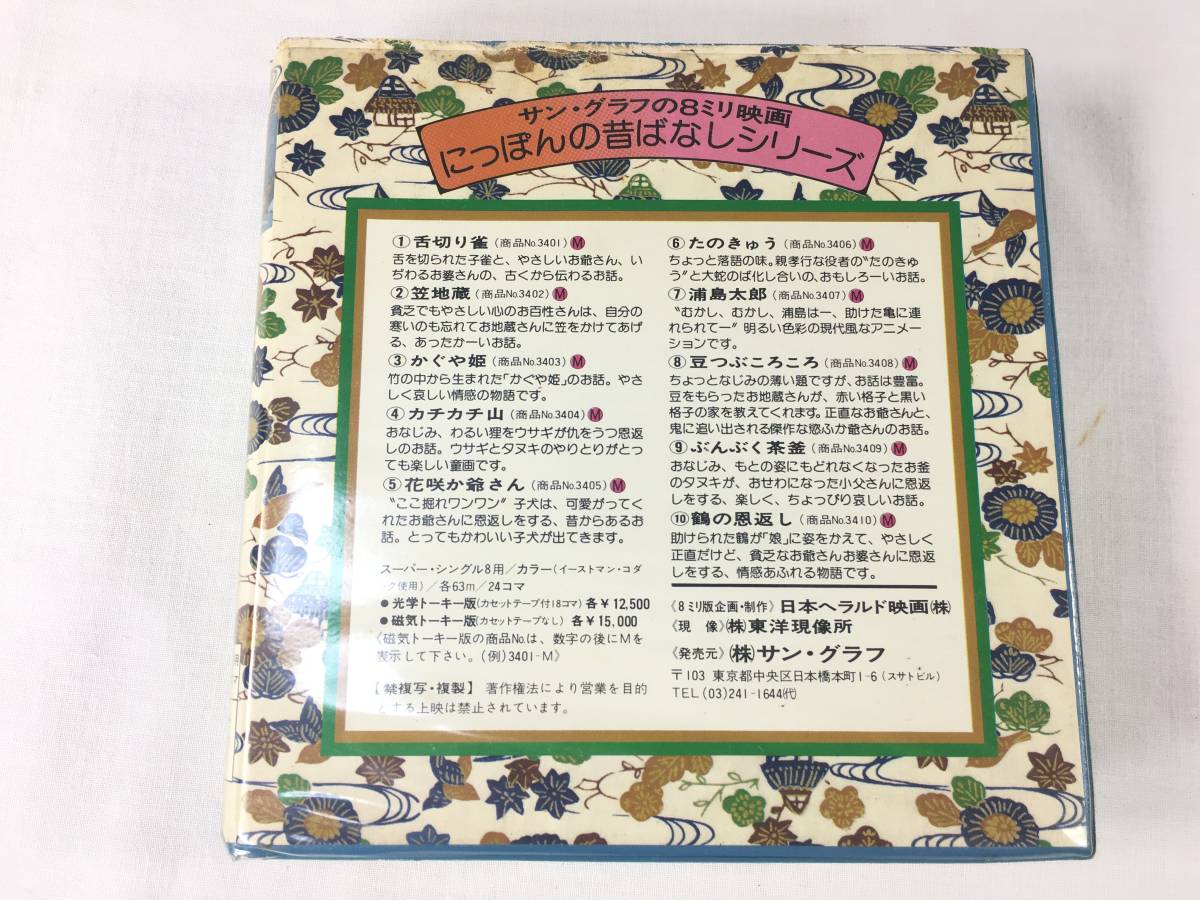 サン・グラフの8ミリ映画
にっぽんの昔ばなしシリーズ
①舌切り雀(商品No.3401)Ⓜ
舌を切られた子雀と、やさしいお爺さん、い
ぢわるお婆さんの、古くから伝わるお話。
②笠地蔵(商品No.3402)Ⓜ
貧乏でもやさしい心のお百性さんは、自分の
寒いのも忘れてお地蔵さんに笠をかけてあげ
る、あったかーいお話。
③かぐや姫(商品No.3403)Ⓜ
竹の中から生まれた「かぐや姫」のお話。やさ
しく哀しい情感の物語です。
④カチカチ山(商品No.3404)Ⓜ
おなじみ、わるい狸をウサギが仇をうつ恩返
しのお話。ウサギとタヌキのやりとりがとっ
ても楽しい童画です。
⑤花咲か爺さん(商品No.3405)Ⓜ
“ここ掘れワンワン”子犬は、可愛がってく
れたお爺さんに恩返しをする、昔からあるお
話。とってもかわいい子犬が出てきます。
スーパー・シングル8用/カラー(イーストマン・コダ
ク使用)/各63m/24コマ
●光学トーキー版(カセットテープ付18コマ)各¥12,500
●磁気トーキー版(カセットテープなし)各¥15,000
《磁気トーキー版の商品No.は、数字の後にMを
表示して下さい。(例)3401-M》
【禁複写・複製】著作権法により営業を目的
とする上映は禁止されています。
⑥たのきゅう(商品No.3406)Ⓜ
ちょっと落語の味。親孝行な役者の“たのきゅ
う”と大蛇のば化し合いの、おもしろーいお話。
⑦浦島太郎(商品No.3407)Ⓜ
“むかし、むかし、浦島はー、助けた亀に連
れられてー”明るい色彩の現代風なアニメー
ションです。
⑧豆つぶころころ(商品No.3408)Ⓜ
ちょっとなじみの薄い題ですが、お話は豊富。
豆をもらったお地蔵さんが、赤い格子と黒い
格子の家を教えてくれます。正直なお爺さんと、
鬼に追い出される傑作な慾ふか爺さんのお話。
⑨ぶんぶく茶釜(商品No.3409)Ⓜ
おなじみ、もとの姿にもどれなくなったお釜
のタヌキが、おせわになった小父さんに恩返
しをする、楽しく、ちょっぴり哀しいお話。
⑩鶴の恩返し(商品No.3410)Ⓜ
助けられた鶴が「娘」に姿をかえて、やさしく
正直だけど、貧乏なお爺さんお婆さんに恩返
しをする、情感あふれる物語です。
《8ミリ版企画・制作》日本ヘラルド映画(株)
《現像》(株)東洋現像所
《発売元》(株)サン・グラフ
〒103 東京都中央区日本橋本町1-6(スサトビル)
TEL(03)241-1644(代)